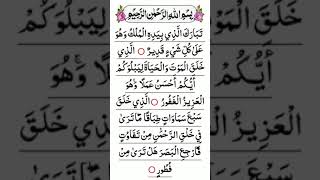 بِسْمِ اللهِ الرَّحْمٰنِ الرَّحِيْمِ
تَبَارَكَ الَّذِي بِيَدِهِ الْمُلْكُ وَهُوَ
عَلَىٰ كُلِّ شَيْءٍ قَدِيرٌ ۝ الَّذِي
خَلَقَ الْمَوْتَ وَالْحَيَاةَ لِيَبْلُوَكُمْ
أَيُّكُمْ أَحْسَنُ عَمَلًا وَهُوَ
الْعَزِيزُ الْغَفُورُ ۝ الَّذِي خَلَقَ
سَبْعَ سَمَاوَاتٍ طِبَاقًا مَّا تَرَىٰ
فِي خَلْقِ الرَّحْمَٰنِ مِنْ تَفَاوُتٍ
فَارْجِعِ الْبَصَرَ هَلْ تَرَىٰ مِنْ
فُطُورٍ ۝